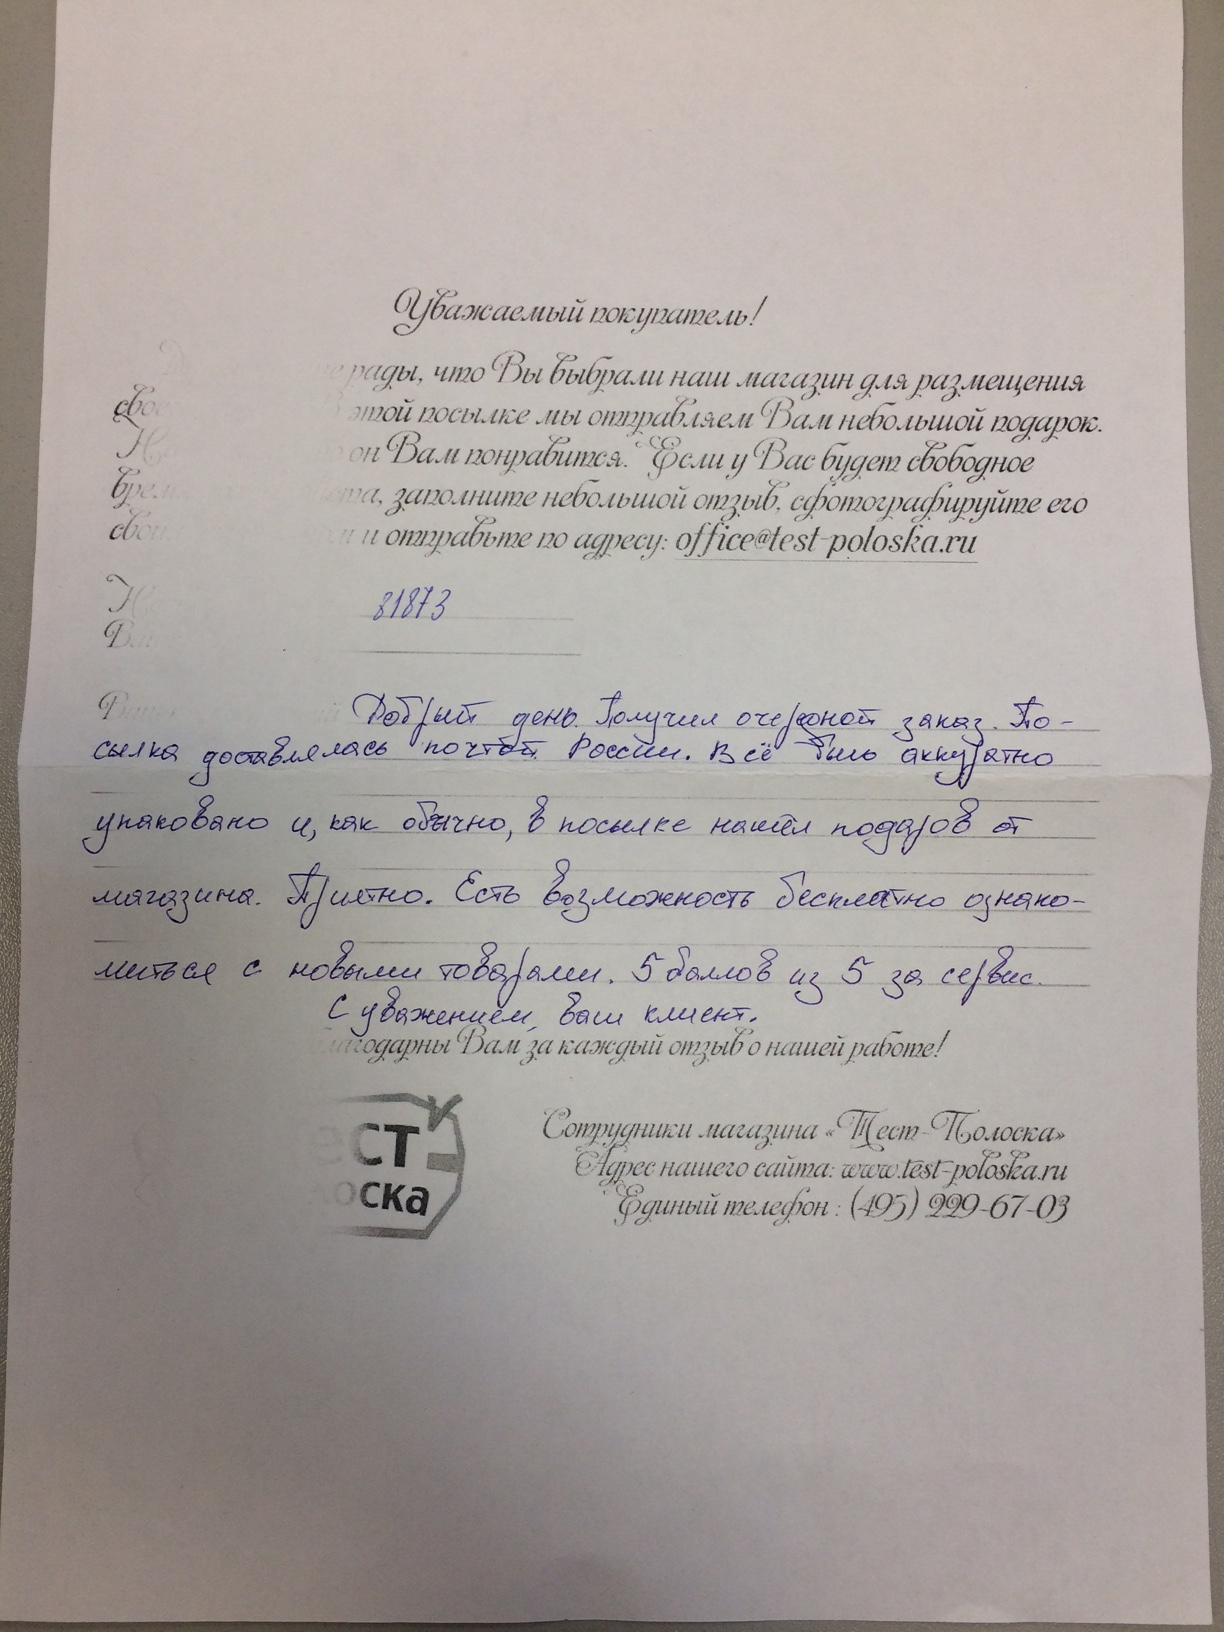 Уважаемый покупатель!
рады, что Вы выбрали наш магазин для размещения
этой посылке мы отправляем Вам небольшой подарок.
он Вам понравится. Если у Вас будет свободное
заполните небольшой отзыв, сфотографируйте его
и отправьте по адресу: office@test-poloska.ru
81873
Добрый день. Получил очередной заказ. По-
сылка доставлялась почтой России. Всё было аккуратно
упаковано и, как обычно, в посылке нашёл подаров от
магазина. Приятно. Есть возможность бесплатно ознако-
миться с новыми товарами. 5 баллов из 5 за сервис.
С уважением, ваш клиент.
Вам за каждый отзыв о нашей работе!
ест
лоска
Сотрудники магазина «Тест-Полоска»
Адрес нашего сайта: www.test-poloska.ru
Единый телефон : (495) 229-67-03